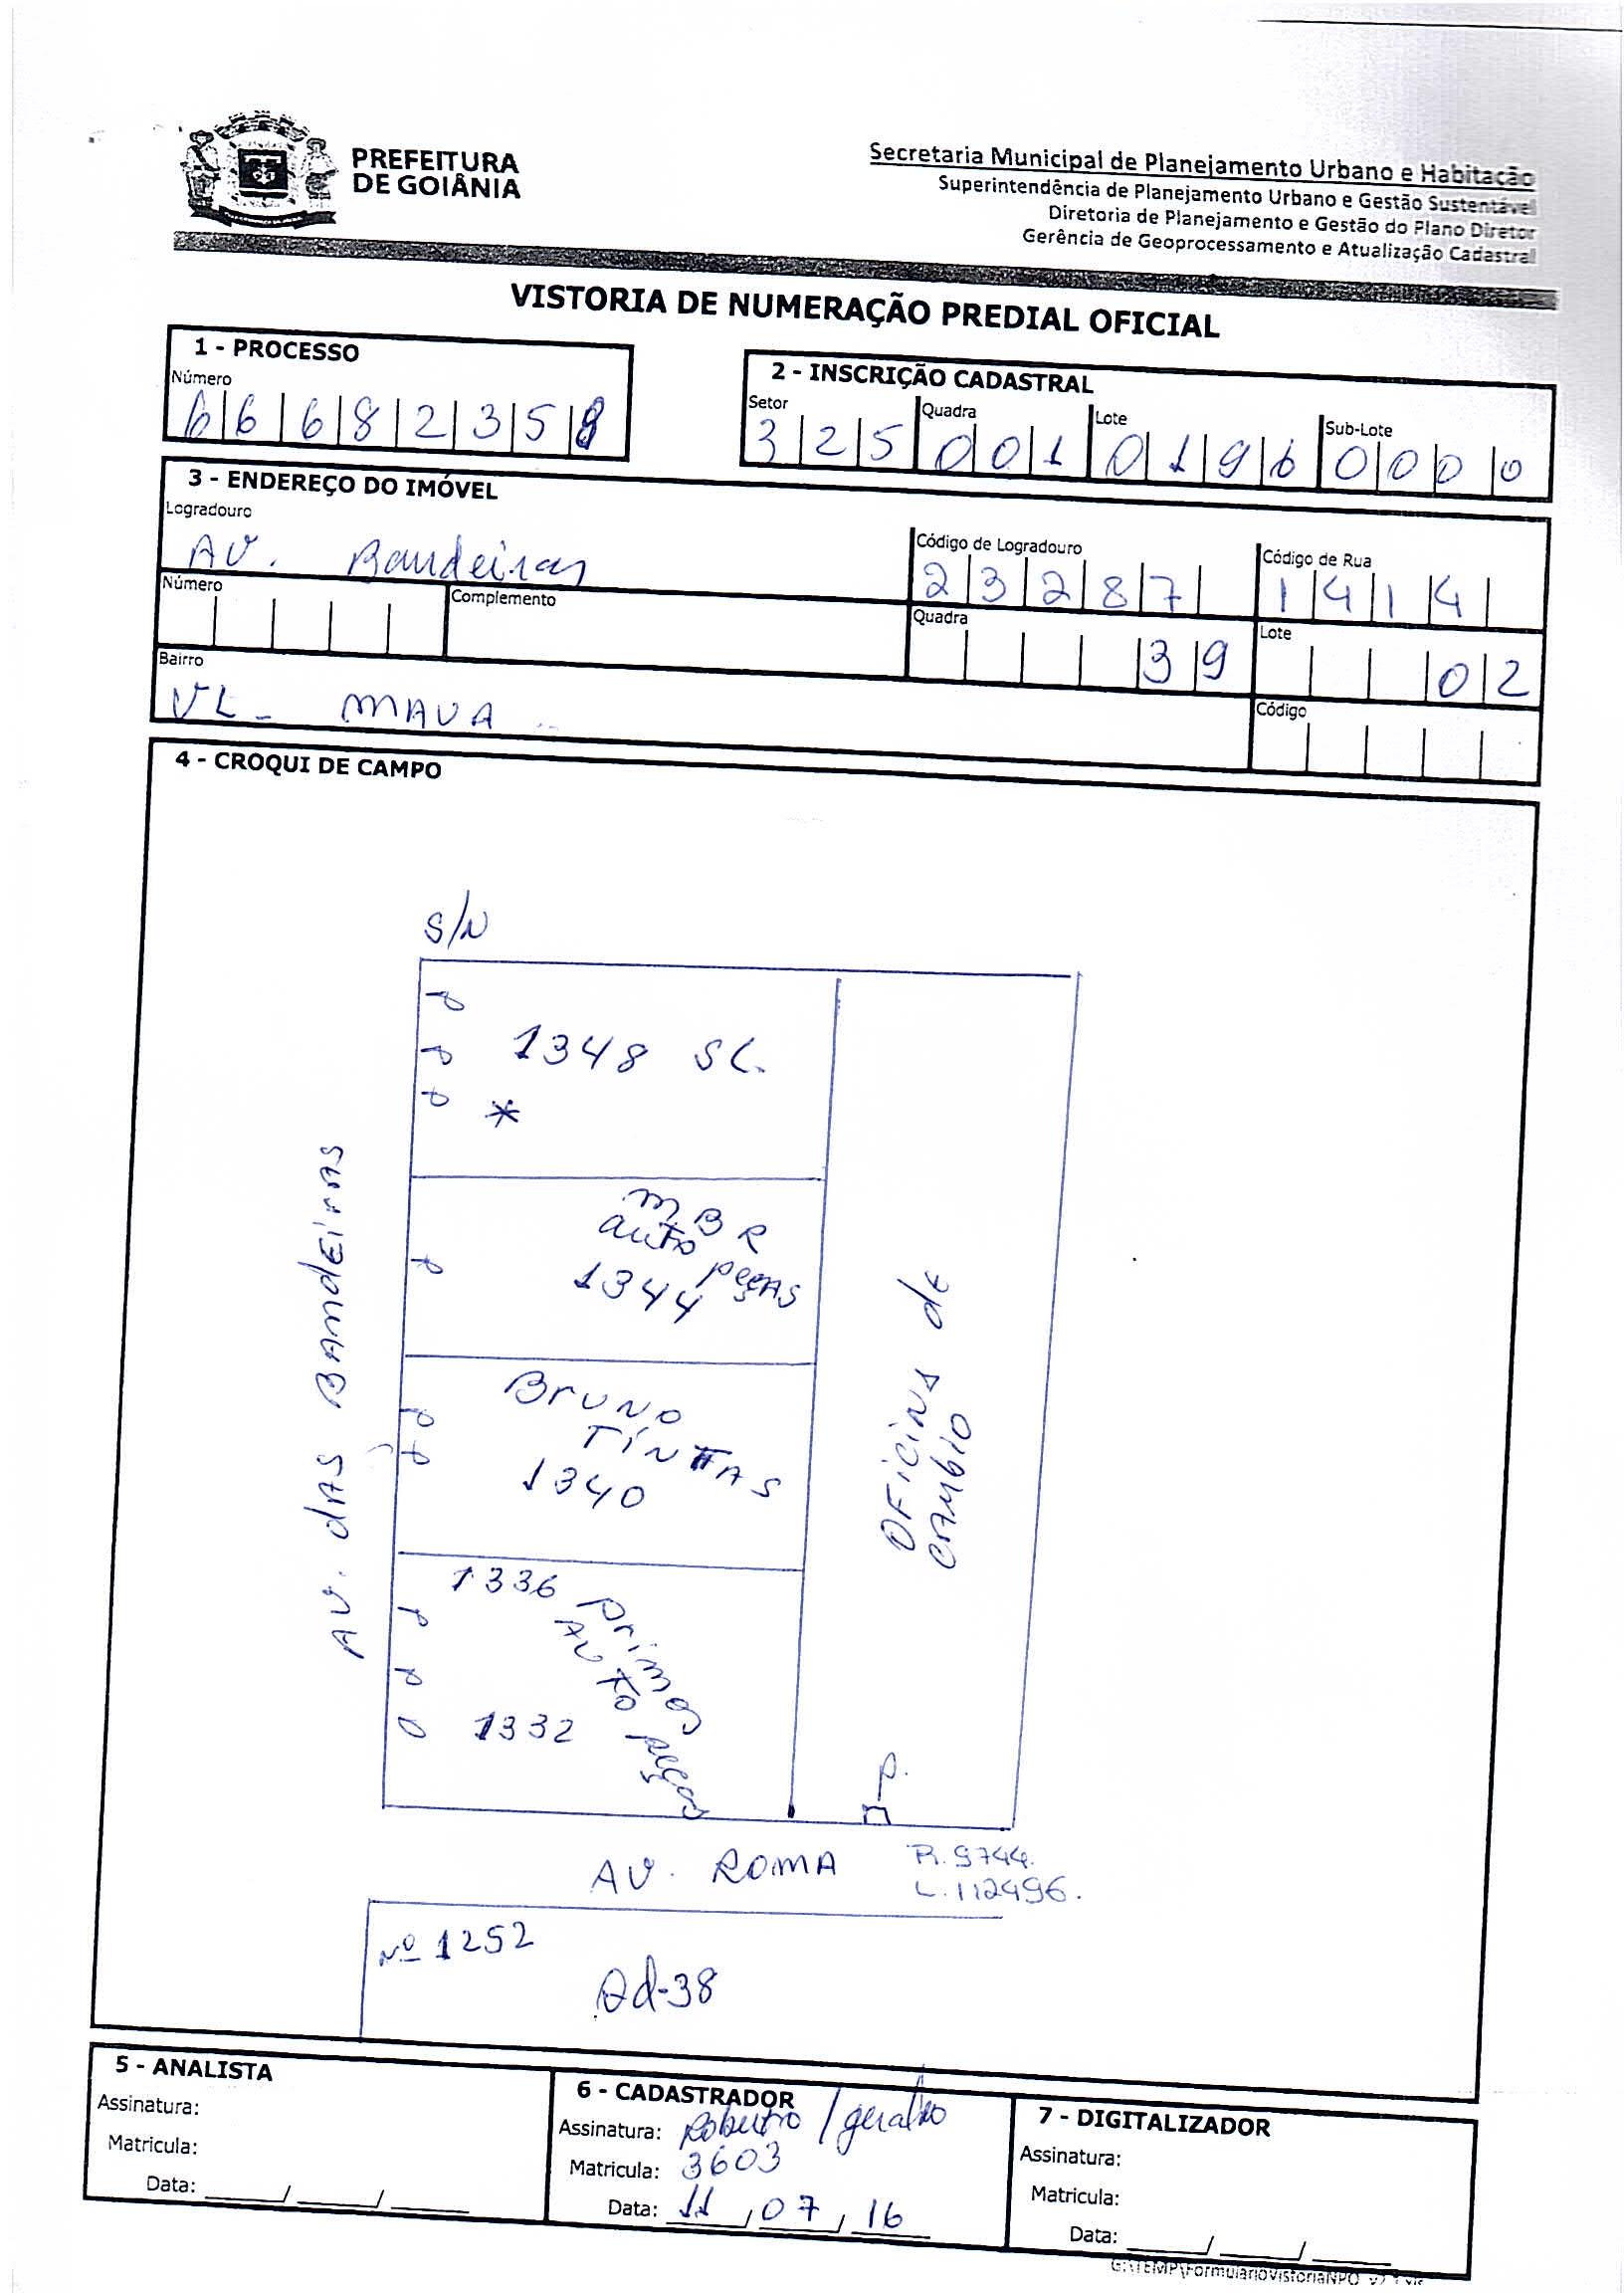 PREFEITURA
DE GOIÂNIA
Secretaria Municipal de Planejamento Urbano e Habitação
Superintendência de Planejamento Urbano e Gestão Sustentável
Diretoria de Planejamento e Gestão do Plano Diretor
Gerência de Geoprocessamento e Atualização Cadastral
VISTORIA DE NUMERAÇÃO PREDIAL OFICIAL
1 - PROCESSO
Número
6 6 6 8 2 3 5 8
2 - INSCRIÇÃO CADASTRAL
Setor Quadra Lote Sub-Lote
3 2 5 0 0 1 0 1 9 6 0 0 0 0
3 - ENDEREÇO DO IMÓVEL
Logradouro Código de Logradouro Código de Rua
AV. Bandeiras 2 3 2 8 7 1 4 1 4
Número Complemento Quadra Lote
3 9 0 2
Bairro Código
VL - MAUA
4 - CROQUI DE CAMPO
S/N
1348 SL.
*
MBR
auto
peças
1344
Bruno
TINTAS
1340
1336 primos
AUTO peças
1332
AV. dAS BANDEIRAS
OFICINA dE
CAMBIO
P.
AV. ROMA
R. 9744.
L. 112496.
Nº 1252
Qd-38
5 - ANALISTA
Assinatura:
Matricula:
Data: ____/____/____
6 - CADASTRADOR
Assinatura: Roberto / geraldo
Matricula: 3603
Data: 11/07/16
7 - DIGITALIZADOR
Assinatura:
Matricula:
Data: ____/____/____